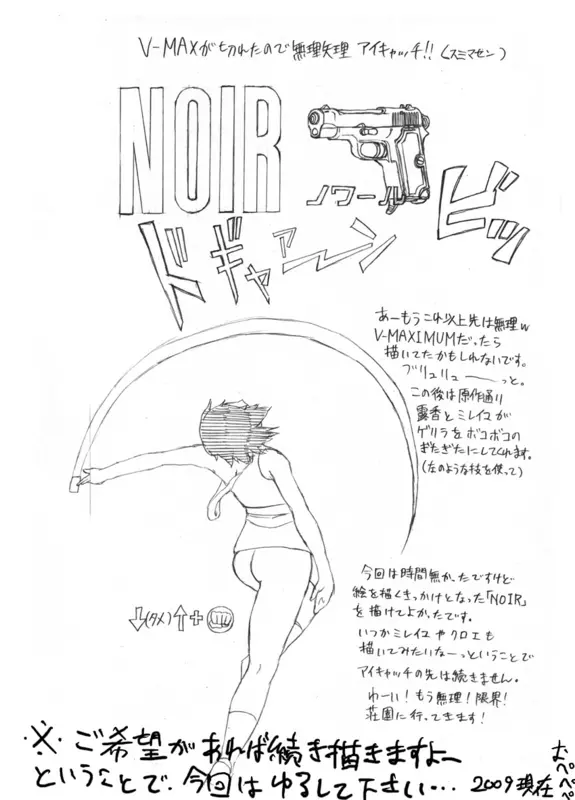 V-MAXが切れたので無理矢理 アイキャッチ!!(スミマセン)
NOIR
ノワール
ビッ
ドギャァーン
あーもうこれ以上先は無理w
V-MAXIMUMだったら
描いてたかもしれないです。
ブリュリューーっと。
この後は原作通り
霧香とミレイユが
ゲリラをボコボコの
ぎたぎたにしてくれます。
(左のような技を使って)
↓(タメ)↑+
今回は時間無かったですけど
絵を描くきっかけとなった「NOIR」
を描けてよかったです。
いつかミレイユやクロエも
描いてみたいなーっということで
アイキャッチの先は続きません。
わーい!もう無理!限界!
荘園に行ってきます!
※・ご希望があれば続き描きますよー
ということで、今回はゆるして下さい… 2009現在